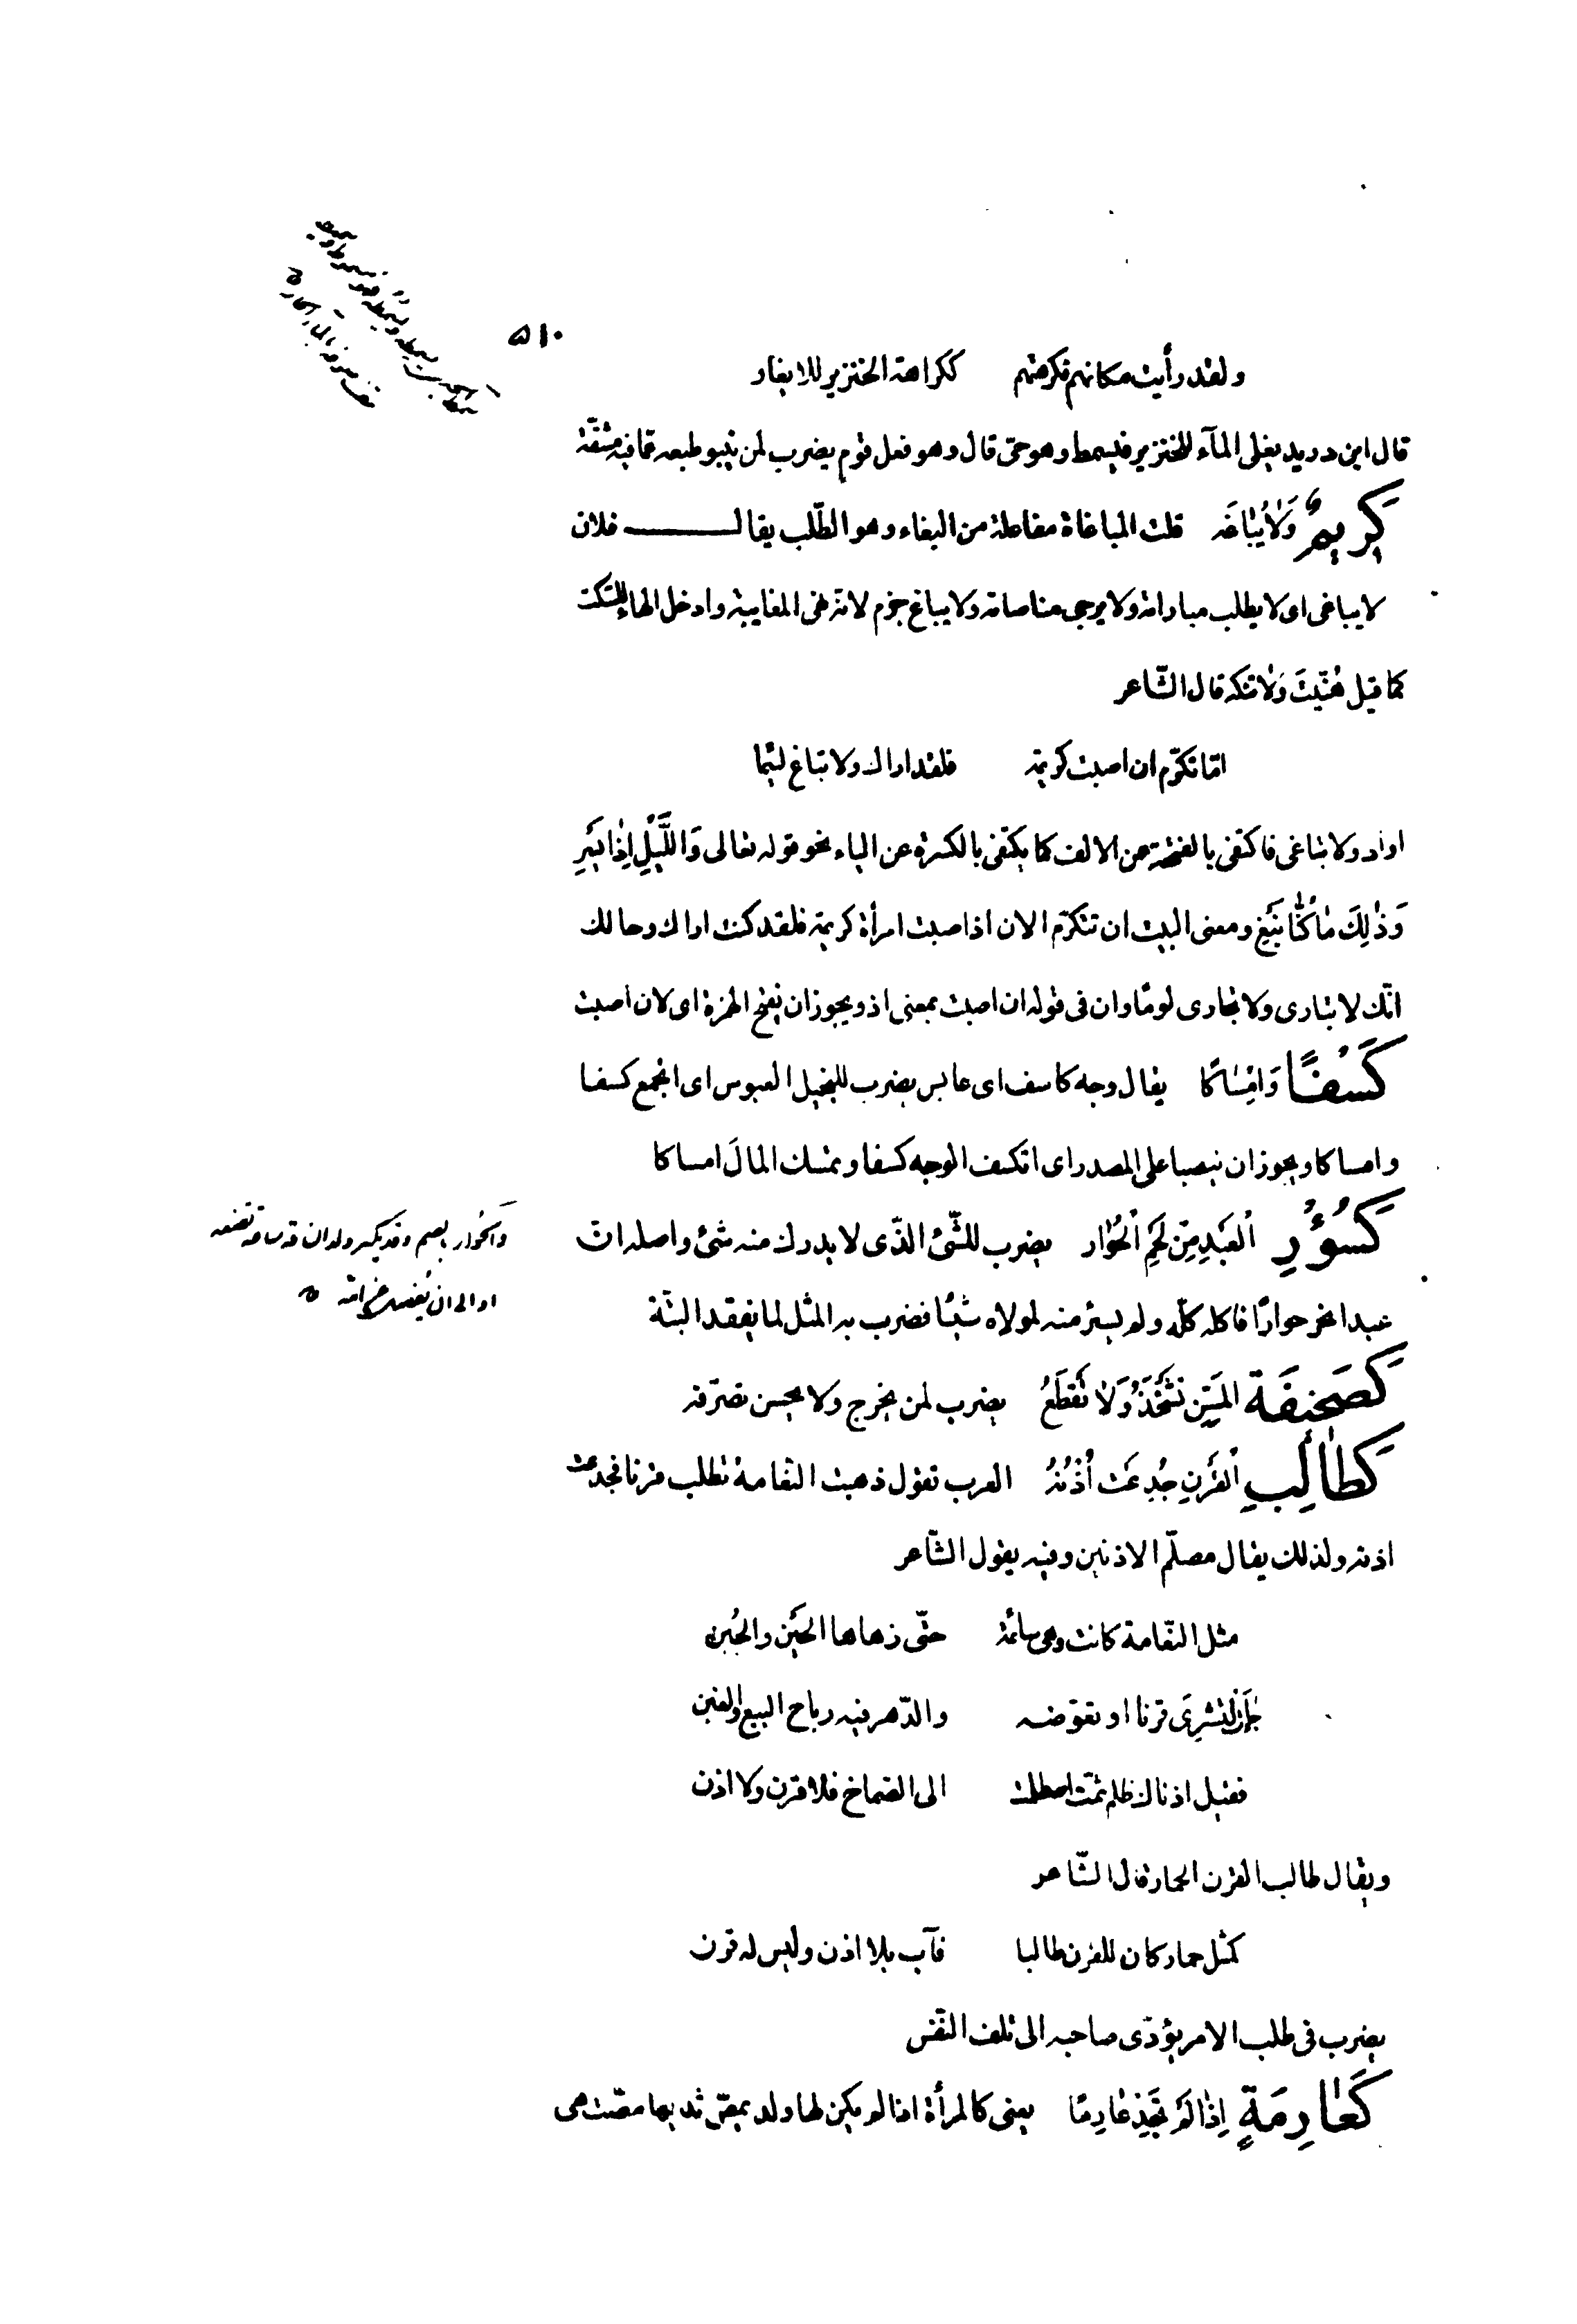 ٥١٠
ولقد رأيت مكانهم فكرهتهم ككراهة الخنزير للايغار
قال ابن دريد يغلى المآء للخنزير فيسمط وهو حى قال وهو فعل قوم يضرب لمن ينبو طبعه عما فيه مشقّة
كَرِيمٌ وَلاٰيُبَاغَه قلت المباغاة مفاعلة من البغاء وهو الطّلب يقال فلان
لا يباغى اى لا يطلب مباراته ولا يرجى مناصاته ولا يباغ جزم لانه نهى المغايبة وادخل الهاء للسّكت
كما قيل هُنّيتَ وَلاٰ تنكه قال الشّاعر
امّا تكرّم ان اصبت كريمة فلقد اراك ولا تباغ لئيما
اراد ولا تباغى فاكتفى بالفتحة من الالف كما يكتفى بالكسرة عن الياء نحو قوله تعالى وَاللَّيْلِ اِذٰا يَسْرِ
وَذٰلِكَ مٰا كُنّٰا نَبْغِ ومعنى البيت ان تتكرّم الان اذ اصبت امرأة كريمة فلقد كنت اراك وحالك
انّك لا تبارى ولا تجارى لومًا وان فى قوله ان اصبت بمعنى اذ ويجوز ان يفتح الهمزة اى لان اصبت
كَسْفًا وَامْسٰاكًا يقال وجه كاسف اى عابس يضرب للبخيل العبوس اى اتجمع كسفا
وامساكا ويجوز ان ينصبا على المصدر اى اتكسف الوجه كسفا وتمسك المالَ امساكا
كَسُؤْرِ اْلعَبْدِ مِنْ لَحْمِ اْلحُوٰار يضرب للشّئ الّذى لا يدرك منه شئ واصله انّ
عبدا نحر حوارًا فاكله كلّه ولم يسئر منه لمولاه شيئًا فضرب به المثل لما يفقد البتّة
والحُوار بالضم وقد يكسر ولد الناقة ساعة تضعه
او الى ان يُفصل عن امّه
كَصَحيفَة المتن تُتَّخَذُ وَلاٰ تُقْطَعُ يضرب لمن يخرج ولا يحسن تصرّفه
كَطٰالِبِ اْلقَرْنِ جُدِعَتْ أُذُنُهُ العرب تقول ذهبت النّعامة تطلب قرنا فجدعت
اذنه ولذلك يقال مصلّم الاذنين وفيه يقول الشّاعر
مثل النّعامة كانت وهى سائمة حتّى زهاها الحَيْن والجُبن
جٰاءت لتشرِىَ قرنا او تعوّضه والدّهر فيه رباح البيع والغبن
فقيل اذناك ظلم ثمّت اصطلمت الى الصّماخ فلا قرن ولا اذن
ويقال طالب القرن الحمار قال الشّاعر
كمثل حمار كان للقرن طالبا فآب بلا اذن وليس له قرن
يضرب فى طلب الامر يؤدّى صاحبه الى تلف النّفس
كَعٰارِمَةٍ اِذٰا لَمْ تَجِدْ عٰارِمًا يعنى كالمرأة اذا لم يكن لها ولد يمصّ ثديها مصّت هى